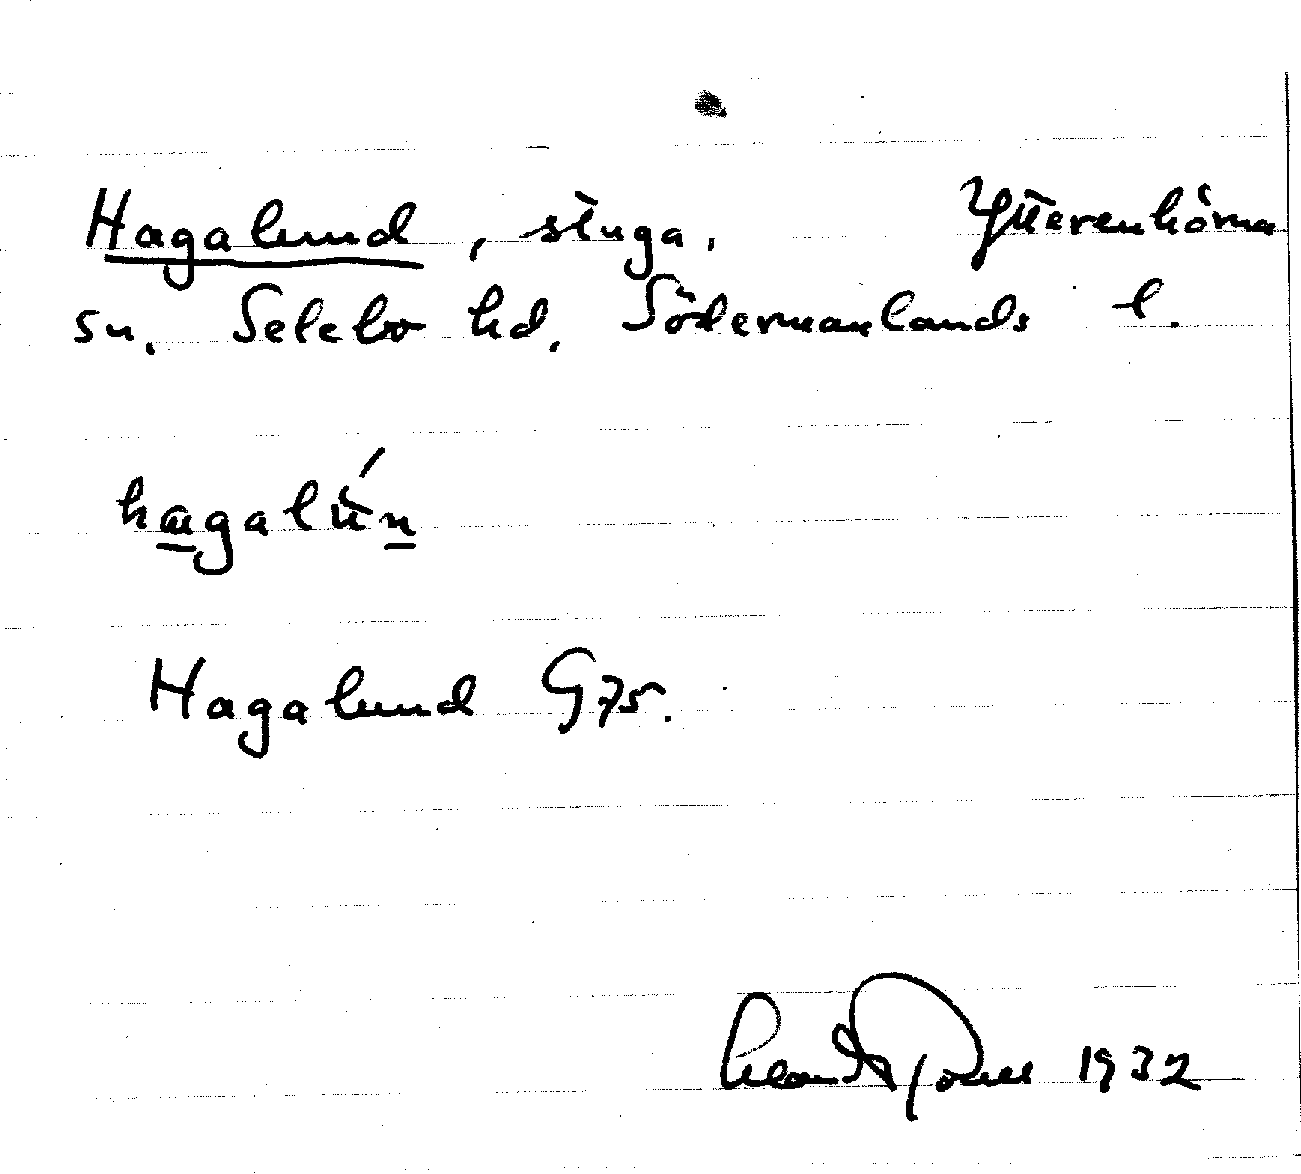 Hagalund, stuga, Ytterenhörna
sn. Selebo hd, Södermanlands l.
hagalún
Hagalund G75.
1932